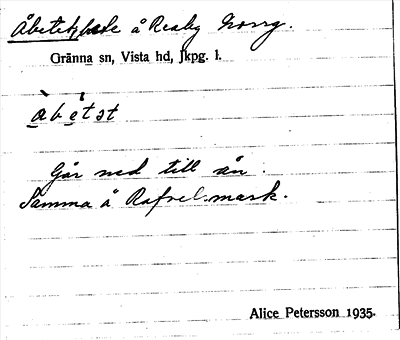 Åbetet, backe å Reaby Norrg.
Gränna sn, Vista hd, Jkpg. l.
àbetət
Går ned till ån.
Samma å Rafvelsmark.
Alice Petersson 1935.